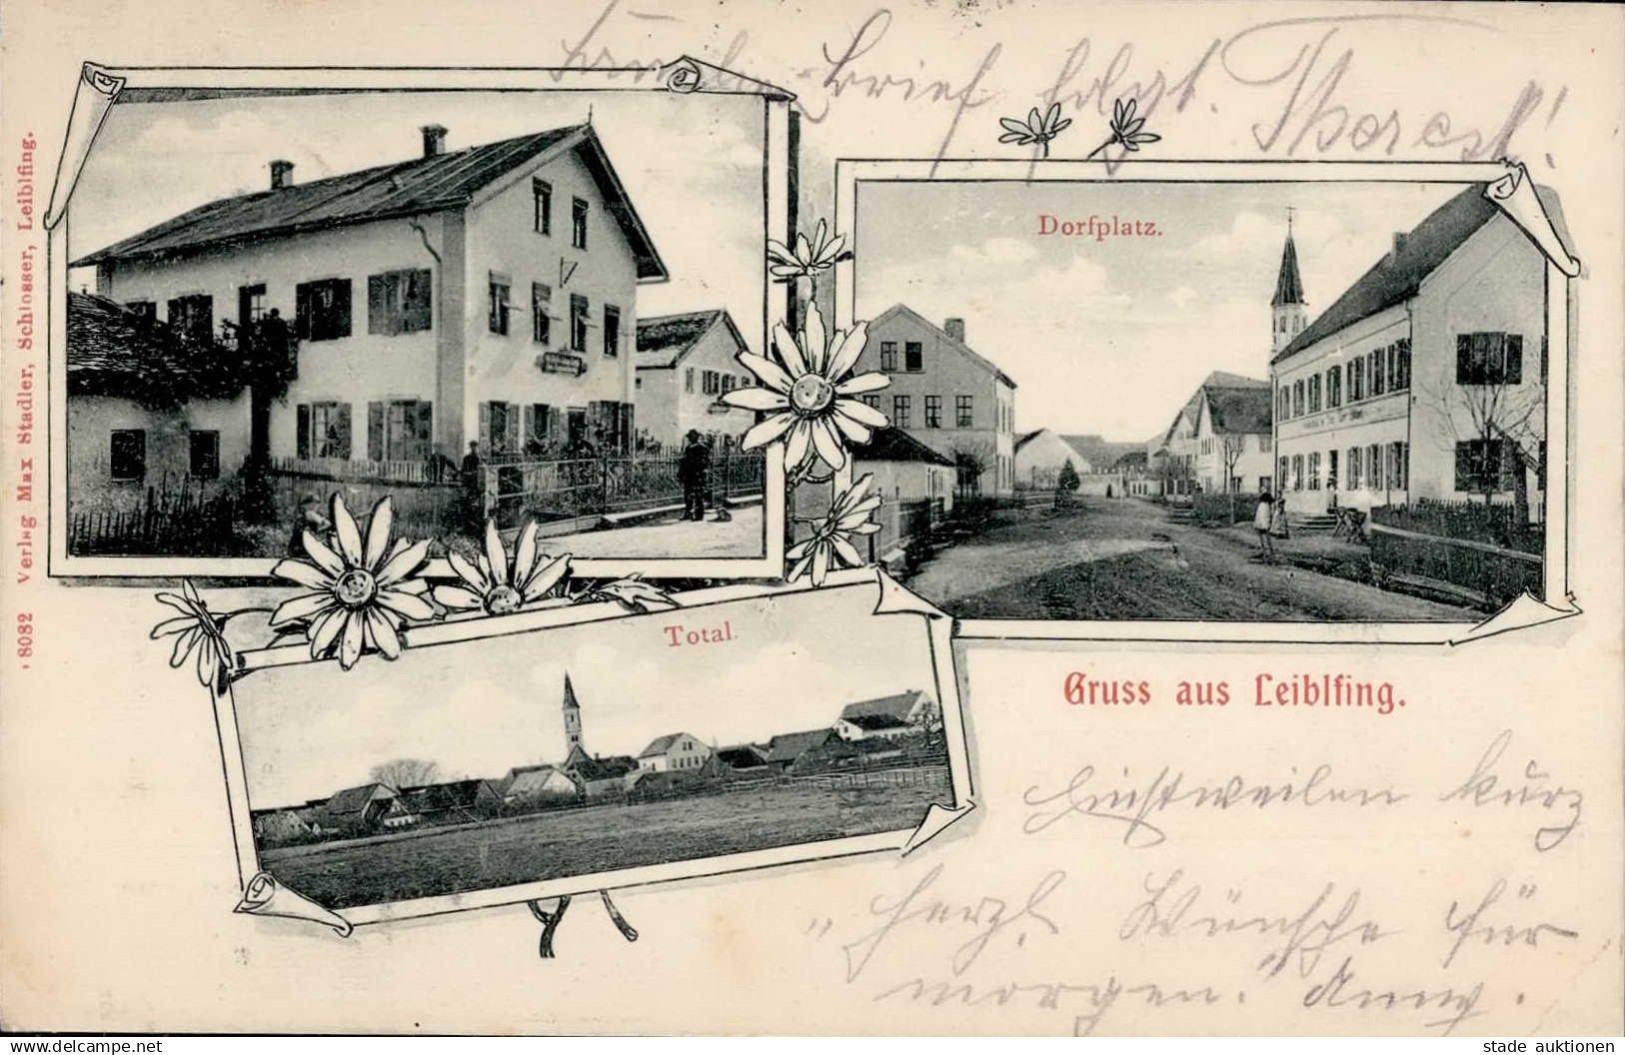 Brief folgt.
Dorfplatz.
8082 Verlag Max Stadler, Schlosser, Leiblfing.
Total.
Gruss aus Leiblfing.
Einstweilen kurz
herzl. Wünsche für
morgen.
www.delcampe.net
stade auktionen